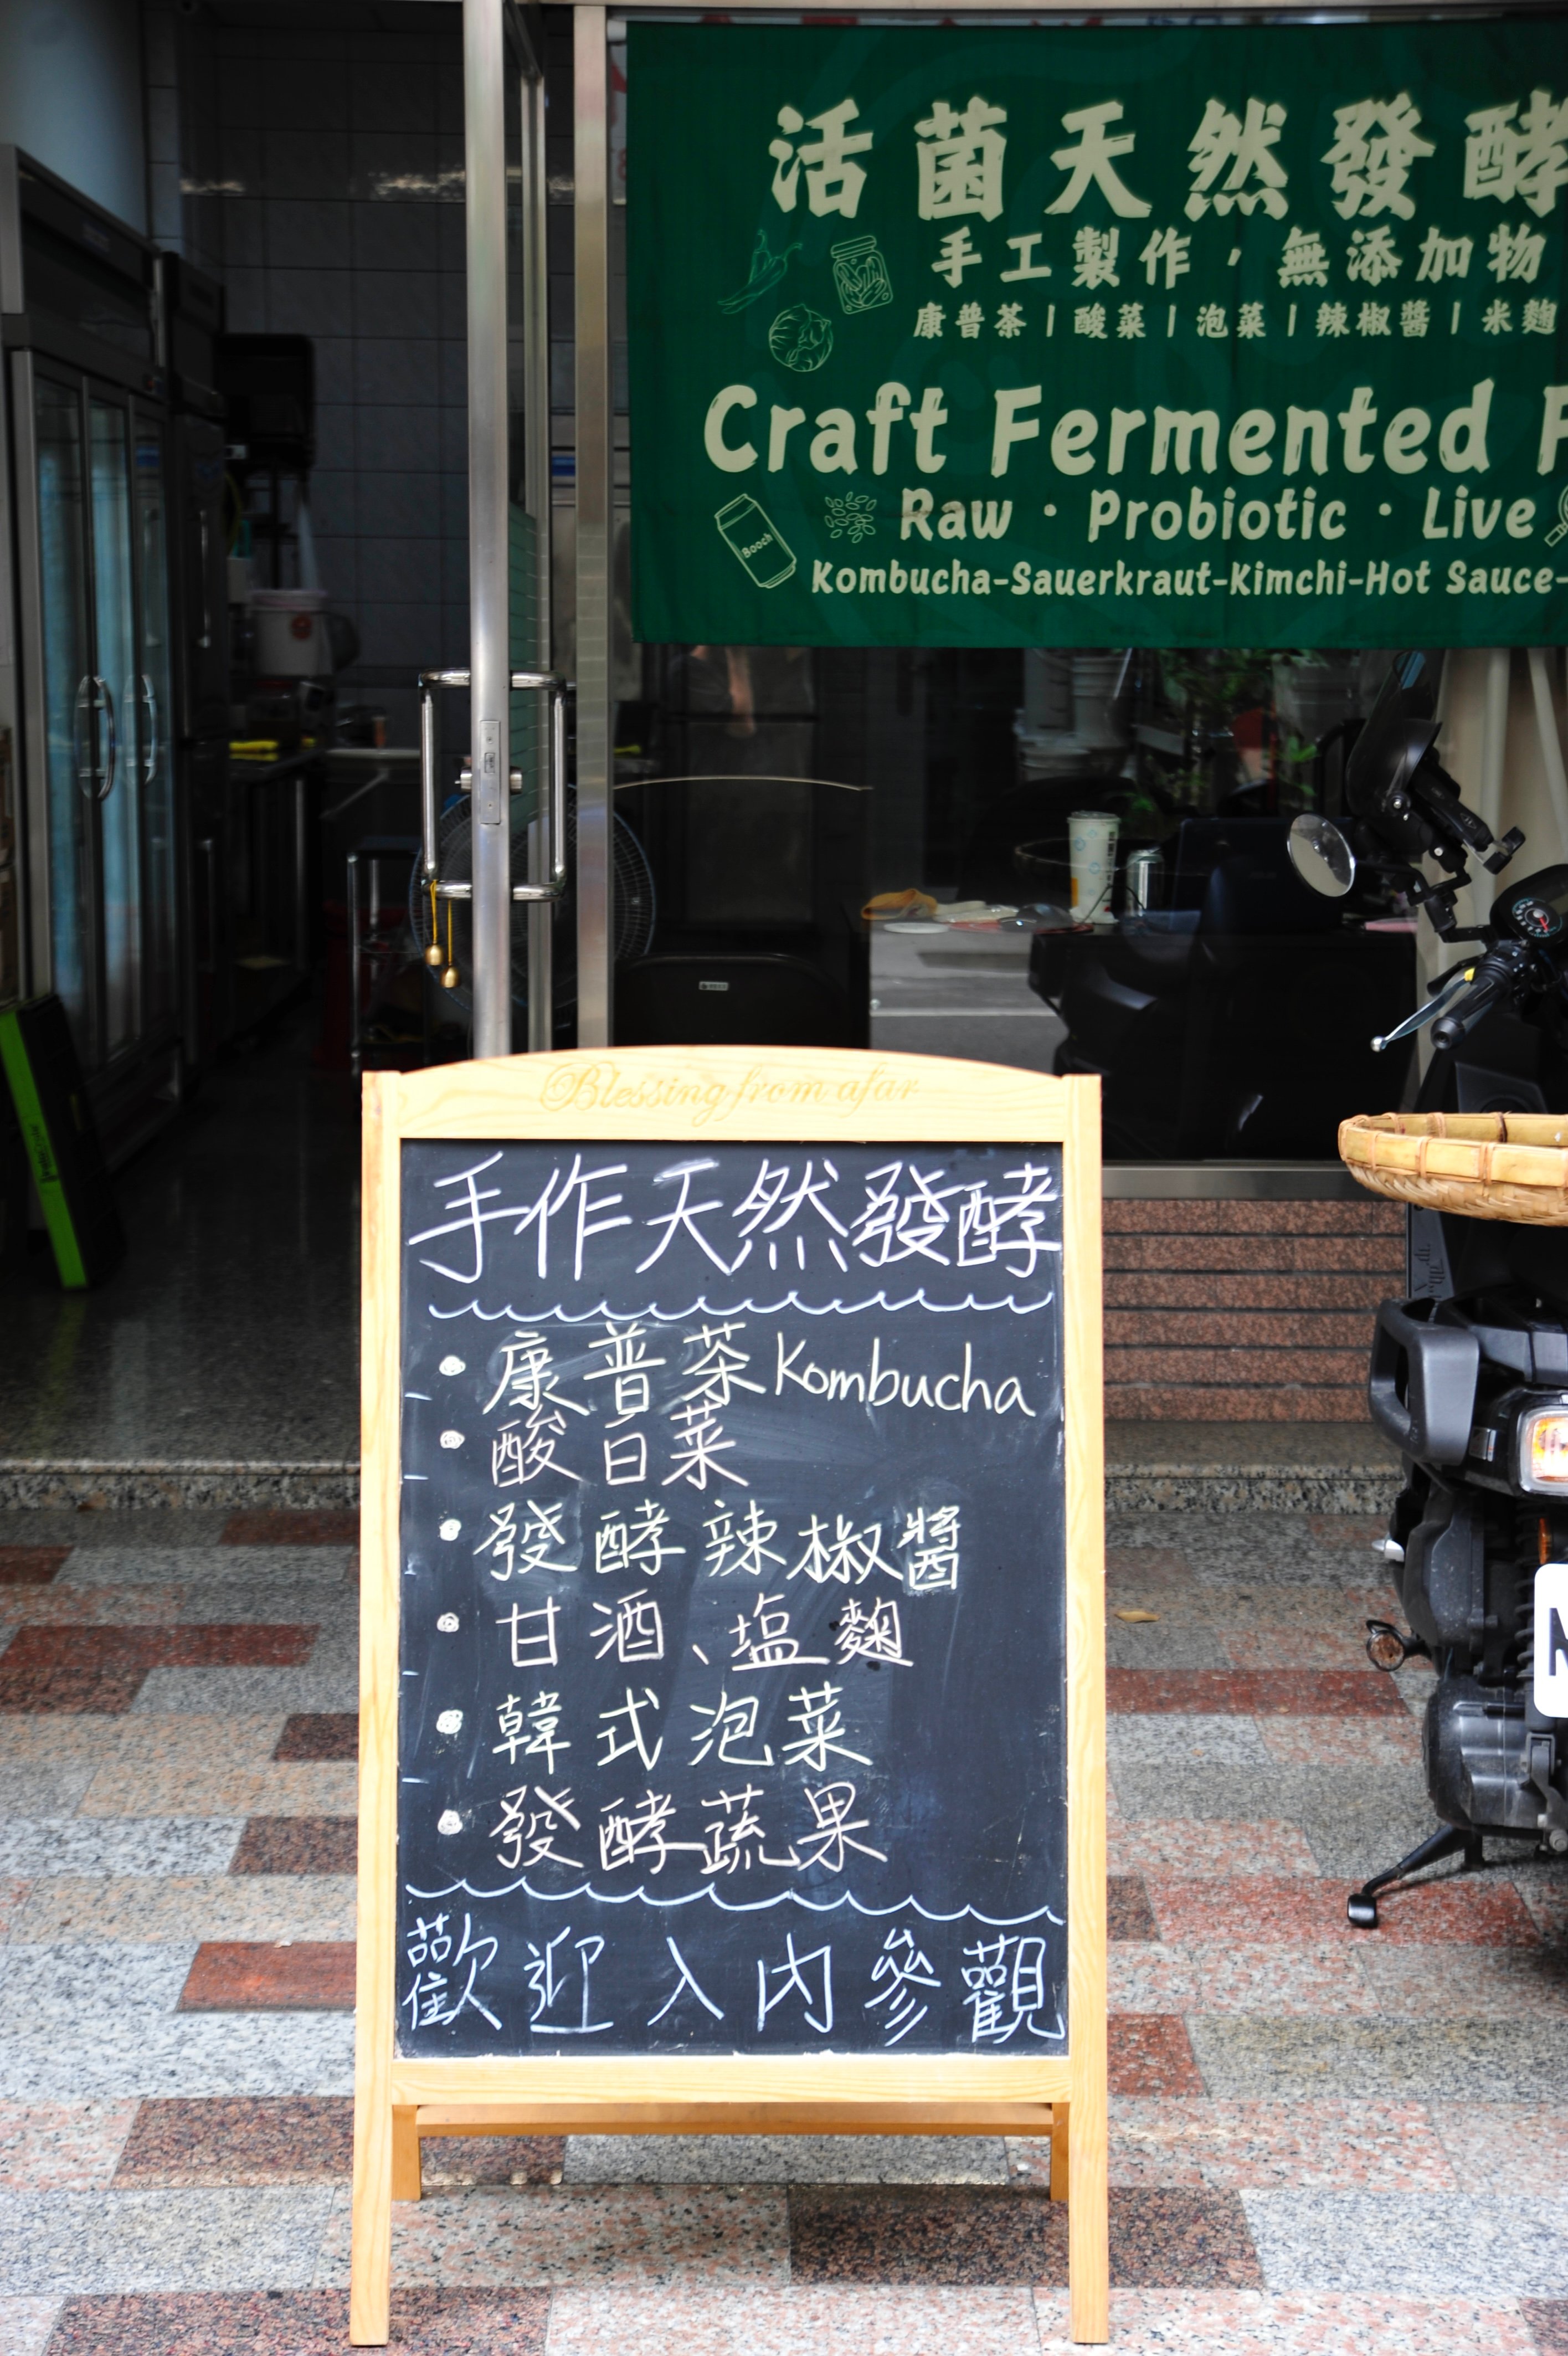 活菌天然發酵
手工製作，無添加物
康普茶 | 酸菜 | 泡菜 | 辣椒醬 | 米麴
Craft Fermented F
Raw · Probiotic · Live
Booch
Kombucha-Sauerkraut-Kimchi-Hot Sauce-
Blessing from afar
手作天然發酵
康普茶Kombucha
酸白菜
發酵辣椒醬
甘酒、塩麴
韓式泡菜
發酵蔬果
歡迎入內參觀